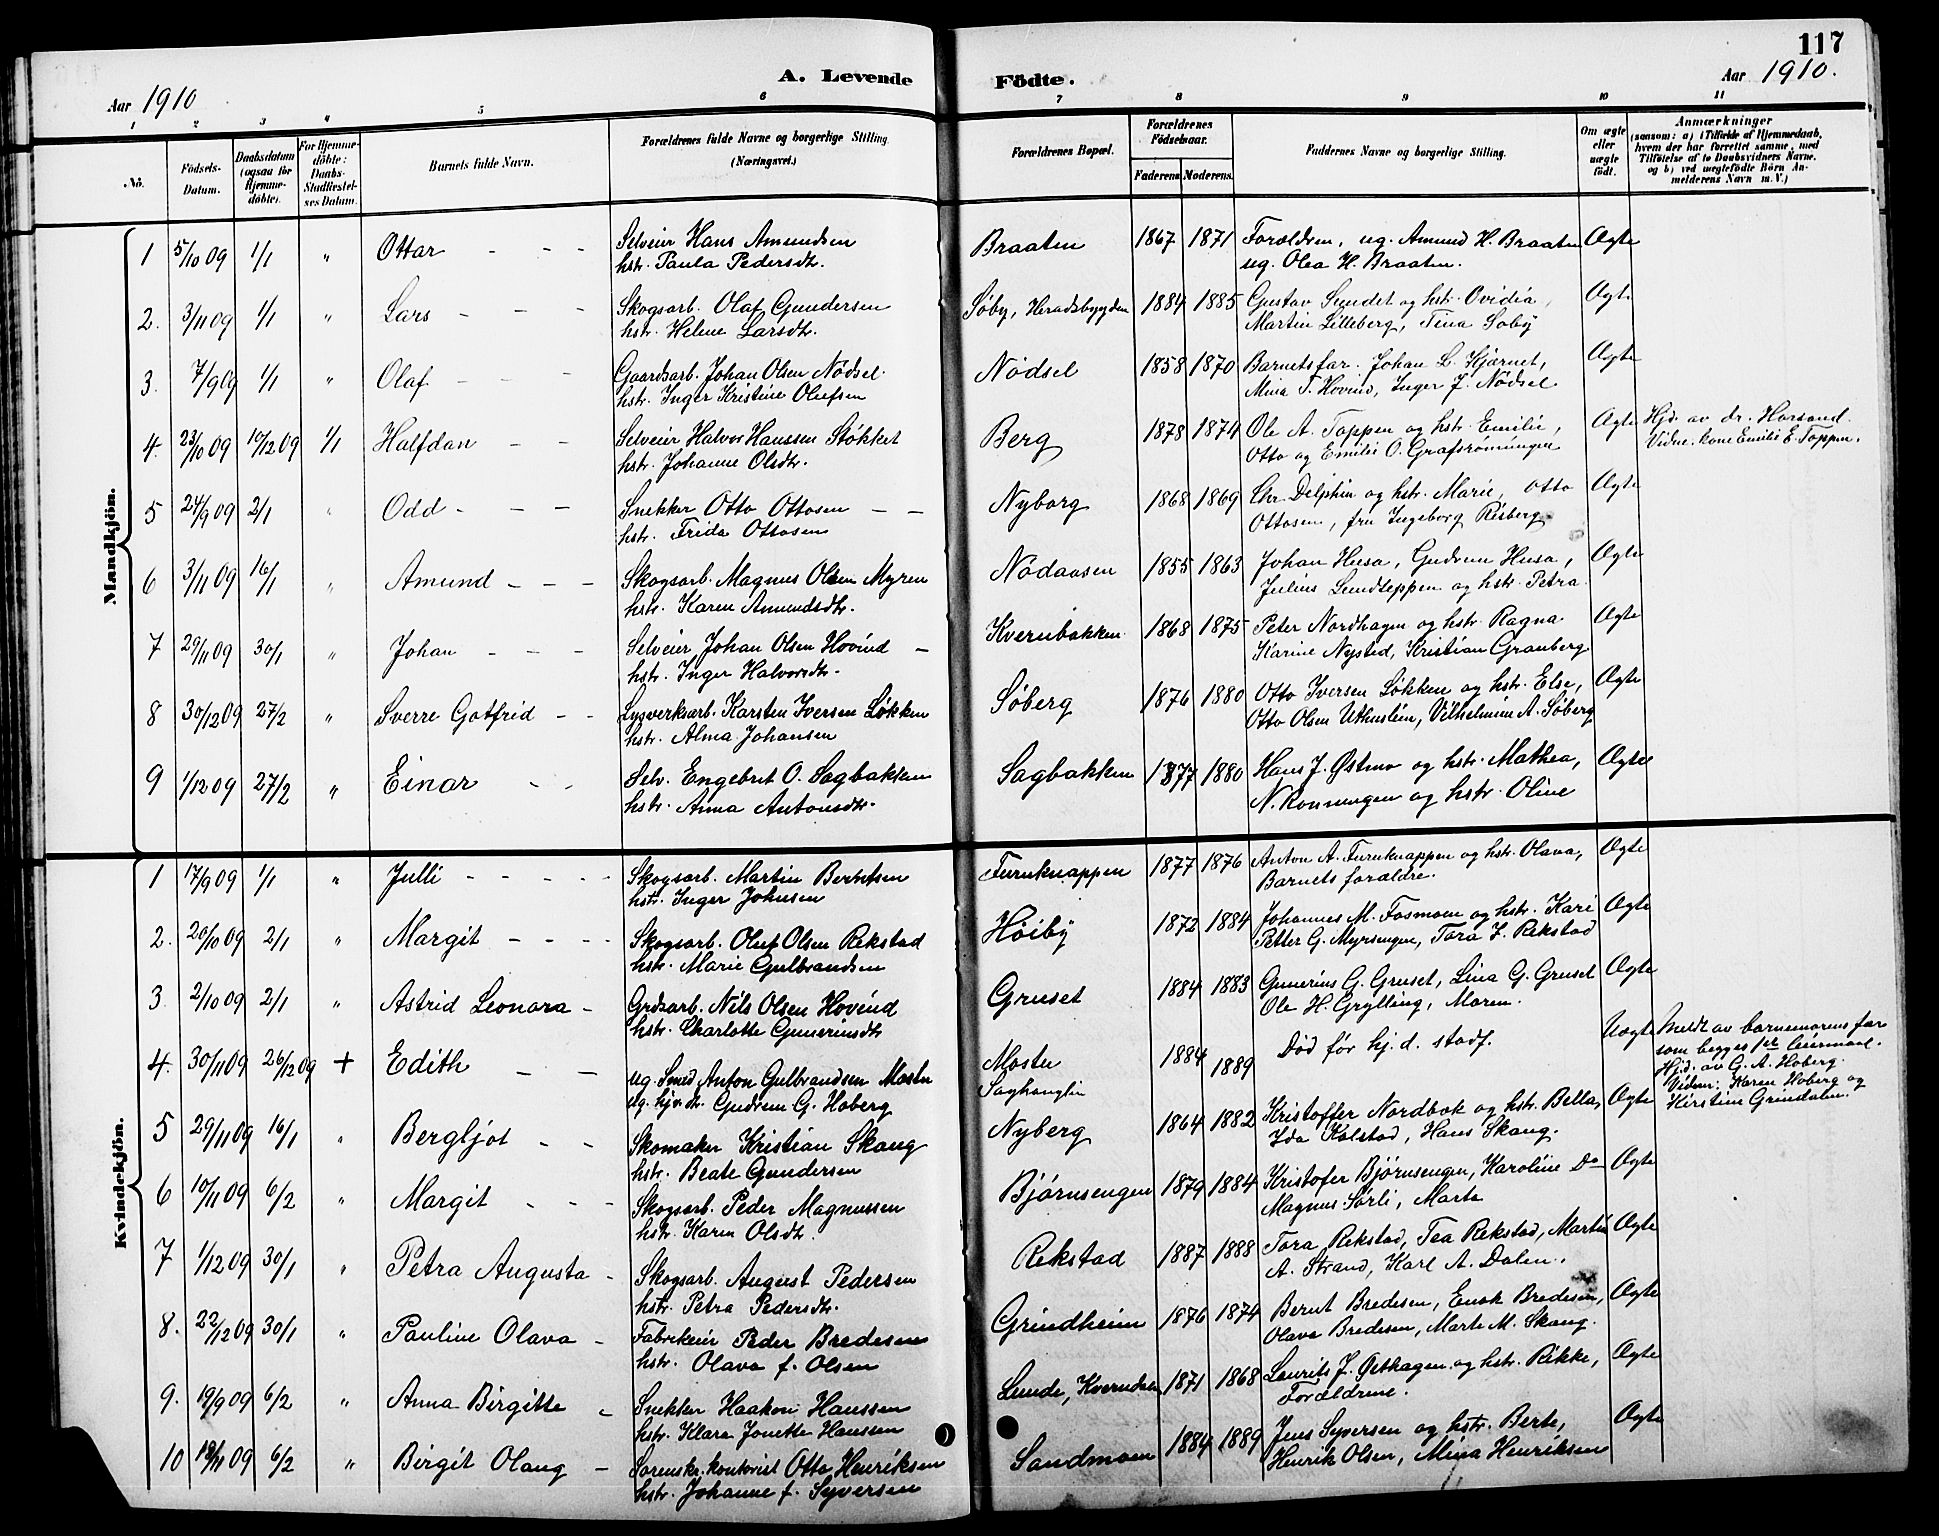 117
Aar 1910
A. Levende Födte.
Aar 1910.
1 2 3 4 5 6 7 8 9 10 11
No.
Födsels-
Datum.
Daabsdatum
(ogsaa for
Hjemme-
döbte).
For Hjemme-
döbte:
Daabs-
Stadfæstel-
ses Datum.
Barnets fulde Navn.
Forældrenes fulde Navne og borgerlige Stilling
(Næringsvei.)
Forældrenes Bopæl.
Forældrenes
Födselsaar.
Faderens Moderens.
Faddernes Navne og borgerlige Stilling.
Om ægte
eller
uægte
født.
Anmærkninger
(saasom: a) i Tilfælde af Hjemmedaab,
hvem der har forrettet samme, med
Tilföielse af to Daabsvidners Navne.
og b) ved uægtefödte Börn An-
melderens Navn m. V.)
Mandkjön.
1 5/10 09 1/1 " Ottar - - - Selveier Hans Amundsen Braaten 1867 1871 Forældren, ug. Amund H. Braaten Ægte
hstr. Paula Pedersdtr. ug. Olea H. Braaten.
2. 3/11 09 1/1 " Lars - - - Skogsarb. Olaf Gundersen Søby, Heradsbygden 1884 1885 Gustav Sundet og hstr. Ovidia, Ægte
hstr. Helene Larsdtr. Martin Lilleberg, Tina Søby
3. 7/9 09 1/1 " Olaf - - - Gaardsarb. Johan Olsen Nödsel Nödsel 1858 1870 Barnets far. Johan L. Hjærnet, Ægte
hstr. Inger Kristine Olufsen Mina T. Hovind, Inger J. Nödsel
4. 23/10 09 10/12 09 1/1 Halfdan - - Selveier Halvor Hanssen Støkket Berg 1878 1874 Ole A. Toppen og hstr. Emilie, Ægte Hjd. av dr. Harsand.
hstr. Johanne Olsdtr. Otto og Emilie O. Grafsrønningen Vidne. kone Emilie E. Toppen.
5 24/9 09 2/1 " Odd - - - Snekker Otto Ottosen - - Nyborg 1868 1869 Chr. Delphin og hstr. Marie, Otto Ægte
hstr. Frida Ottosen Ottosen, fru Ingeborg Risberg
6 3/11 09 16/1 " Amund - - - Skogsarb. Magnus Olsen Myren Nödaasen 1855 1863 Johan Husa, Gudrun Husa, Ægte
hstr. Karen Amundsdtr. Julius Lundteppen og hstr. Petra.
7 29/11 09 30/1 " Johan - - - Selveier Johan Olsen Hovind - Kvernbakken 1868 1875 Peter Nordhagen og hstr. Ragna. Ægte
hstr. Inger Halvorsdtr. Karine Nysted, Kristian Granberg
8 30/12 09 27/2 " Sverre Gotfrid - - Lysverksarb. Karsten Iversen Løkken Søberg 1876 1880 Otto Iversen Løkken og hstr. Else, Ægte
hstr. Alma Johansen Otto Olsen Uthuslien, Vilhelmine A. Søberg
9 1/12 09 27/2 " Einar - - Selv. Engebret O. Sagbakken Sagbakken 1877 1880 Hans J. Østmo og hstr. Mathea, Ægte
hstr. Anna Antonsdtr. N. Ronningen og hstr. Oline
Kvindekjön.
1 17/9 09 1/1 " Julli - - - - - Skogsarb. Martin Berntsen Furuknappen 1877 1876 Anton A. Furuknappen og hstr. Olava, Ægte
hstr. Inger Johnsen Barnets forældre.
2. 20/10 09 2/1 " Margit - - - - Skogsarb. Oluf Olsen Rekstad Höiby 1872 1884 Johannes M. Fosmoen og hstr. Kari Ægte
hstr. Marie Gulbrandsen Petter G. Myrsengen, Tora J. Rekstad
3. 2/10 09 2/1 " Astrid Leonora - Grdsarb. Nils Olsen Hovind Gruset 1884 1883 Gunerius G. Gruset, Lina G. Gruset Ægte
hstr. Charlotte Gunneriusdtr Ole H. Grylling, Maren.
4. 30/11 09 26/12 09 + Edith - - ug. Smed Anton Gulbrandsen Moster Moster 1884 1889 Død før hj. d. stadf. Uægte Meldt av barnemorens far
ug. hjv. dr. Gudrun G. Hoberg Saghauglien som begges 1ste leiermaal.
Hj.d. av G. A. Hoberg.
Vidner: Karen Hoberg og
Kirstine Grindalen.
5 29/11 09 16/1 " Bergljot - - Skomaker Kristian Skaug Nyberg 1864 1882 Kristoffer Nordbok og hstr. Bella, Ægte
hstr. Beate Gundersen Ida Kolstad, Hans Skaug.
6 10/11 09 6/2 " Margit - - - Skogsarb. Peder Magnussen Bjørnsengen 1879 1884 Kristofer Bjørnsengen, Karoline Do Ægte
hstr. Karen Olsdtr. Magnus Sørli, Marte
7 1/12 09 30/1 " Petra Augusta - Skogsarb. August Pedersen Rekstad 1887 1888 Tora Rekstad, Tea Rekstad, Martin Ægte
hstr. Petra Pedersdtr. A. Strand, Karl A. Dalen.
8. 22/12 09 30/1 " Pauline Olava - Fabrikeier Peder Bredesen Grindheim 1876 1874 Bernt Bredesen, Enok Bredesen, Ægte
hstr. Olava f. Olsen Olava Bredesen, Marte M. Skaug.
9. 19/9 09 6/2 " Anna Birgitte - Snekker Haakon Hanssen Lunde, Kverndalen 1871 1868 Laurits J. Østhagen og hstr. Rikke, Ægte
hstr. Klara Jonette Hanssen Forældrene.
10 19/11 09 6/2 " Birgit Olaug - Sorenskr. kontorist Otto Henriksen Sandmoen 1884 1889 Jens Syversen og hstr. Berte, Ægte
hstr. Johanne f. Syversen Henrik Olsen, Mina Henriksen